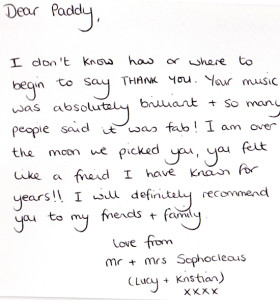 Dear Paddy,
I don't know how or where to
begin to say THANK YOU. Your music
was absolutely brilliant + so many
people said it was fab! I am over
the moon we picked you, you felt
like a friend I have known for
years!! I will definitely recommend
you to my friends + family.
love from
Mr + Mrs Sophocleous
(Lucy + Kristian)
xxxx